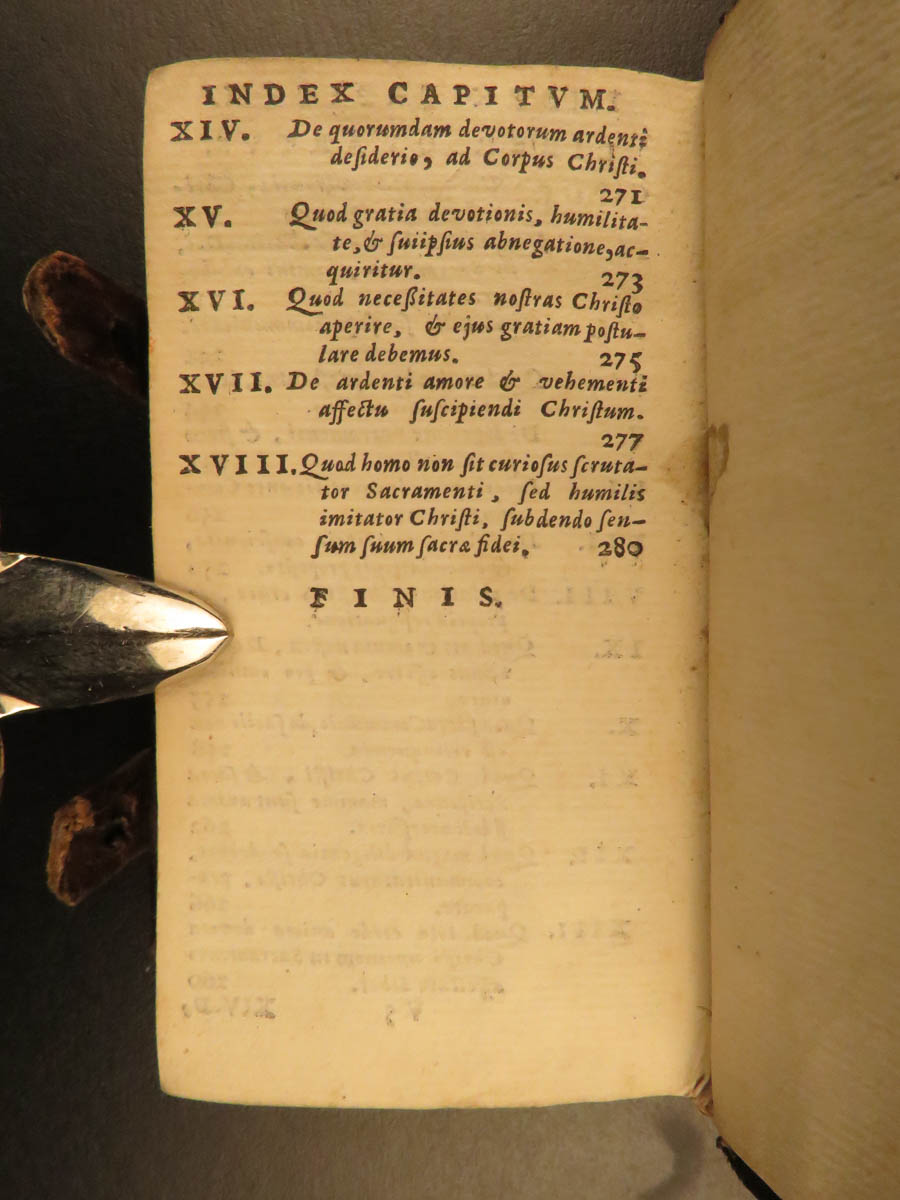 INDEX CAPITVM.
XIV. De quorumdam devotorum ardenti
deſiderio, ad Corpus Chriſti.
271
XV. Quod gratia devotionis, humilita-
te, & ſuiipſius abnegatione, ac-
quiritur. 273
XVI. Quod neceßitates noſtras Chriſto
aperire, & ejus gratiam poſtu-
lare debemus. 275
XVII. De ardenti amore & vehementi
affectu ſuſcipiendi Chriſtum.
277
XVIII. Quod homo non ſit curioſus ſcruta-
tor Sacramenti, ſed humilis
imitator Chriſti, ſubdendo ſen-
ſum ſuum ſacræ fidei. 280
FINIS.